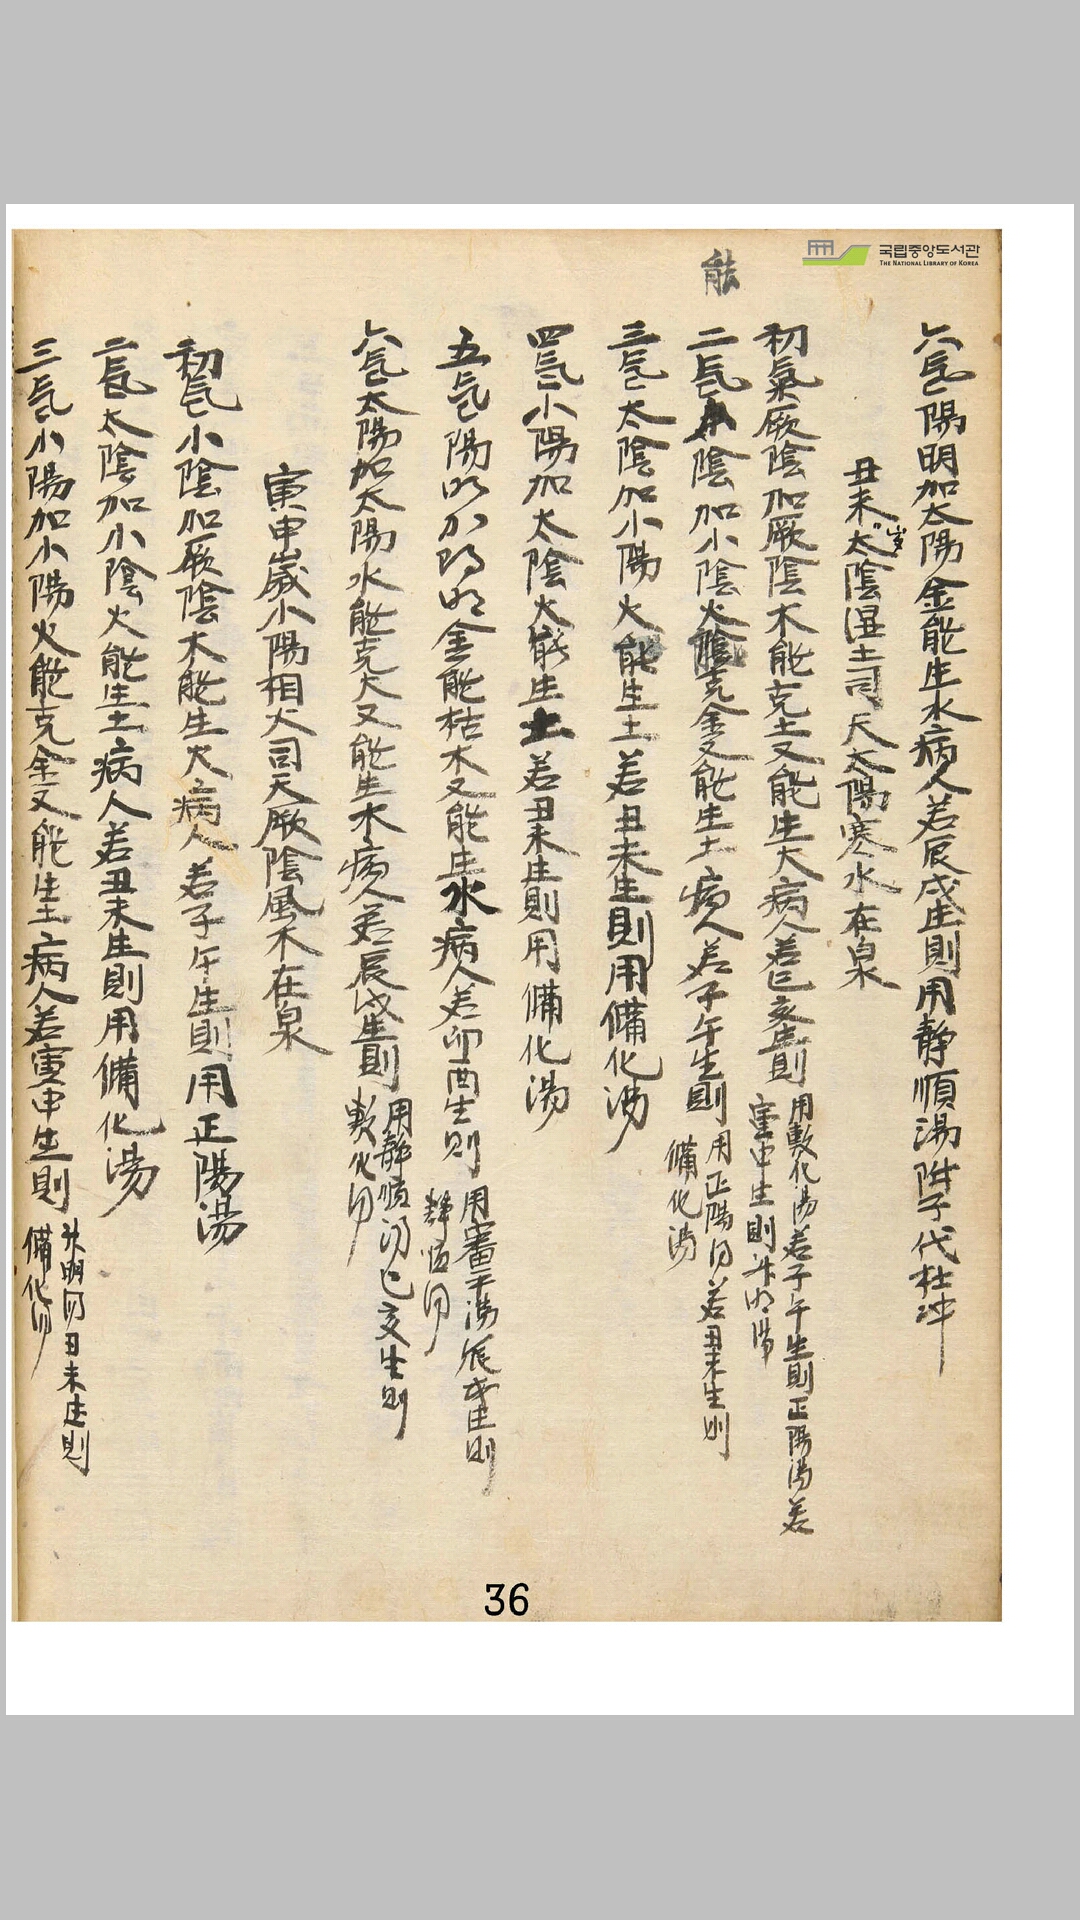 국립중앙도서관
THE NATIONAL LIBRARY OF KOREA
六氣陽明加太陽金能生水病人若辰戌生則用靜順湯附子代杜冲
丑未歲太陰湿土司天太陽寒水在泉
初氣厥陰加厥陰木能克土又能生火病人若巳亥生則
用敷化湯若子午生則正陽湯若
寅申生則升明湯
能
二氣小陰加小陰火克金又能生土病人若子午生則
用正陽湯若丑未生則
備化湯
三氣太陰加小陽火能生土若丑未生則用備化湯
四氣小陽加太陰火能生土若丑未生則用備化湯
五氣陽明加陽明金能枯木又能生水病人若卯酉生則
用審平湯辰戌生則
靜順湯
六氣太陽加太陽水能克火又能生木病人若辰戌生則
用靜順湯巳亥生則
敷化湯
寅申歲小陽相火司天厥陰風木在泉
初氣小陰加厥陰木能生火病人若子午生則用正陽湯
二氣太陰加小陰火能生土病人若丑未生則用備化湯
三氣小陽加小陽火能克金又能生土病人若寅申生則
升明湯丑未生則
備化湯
36